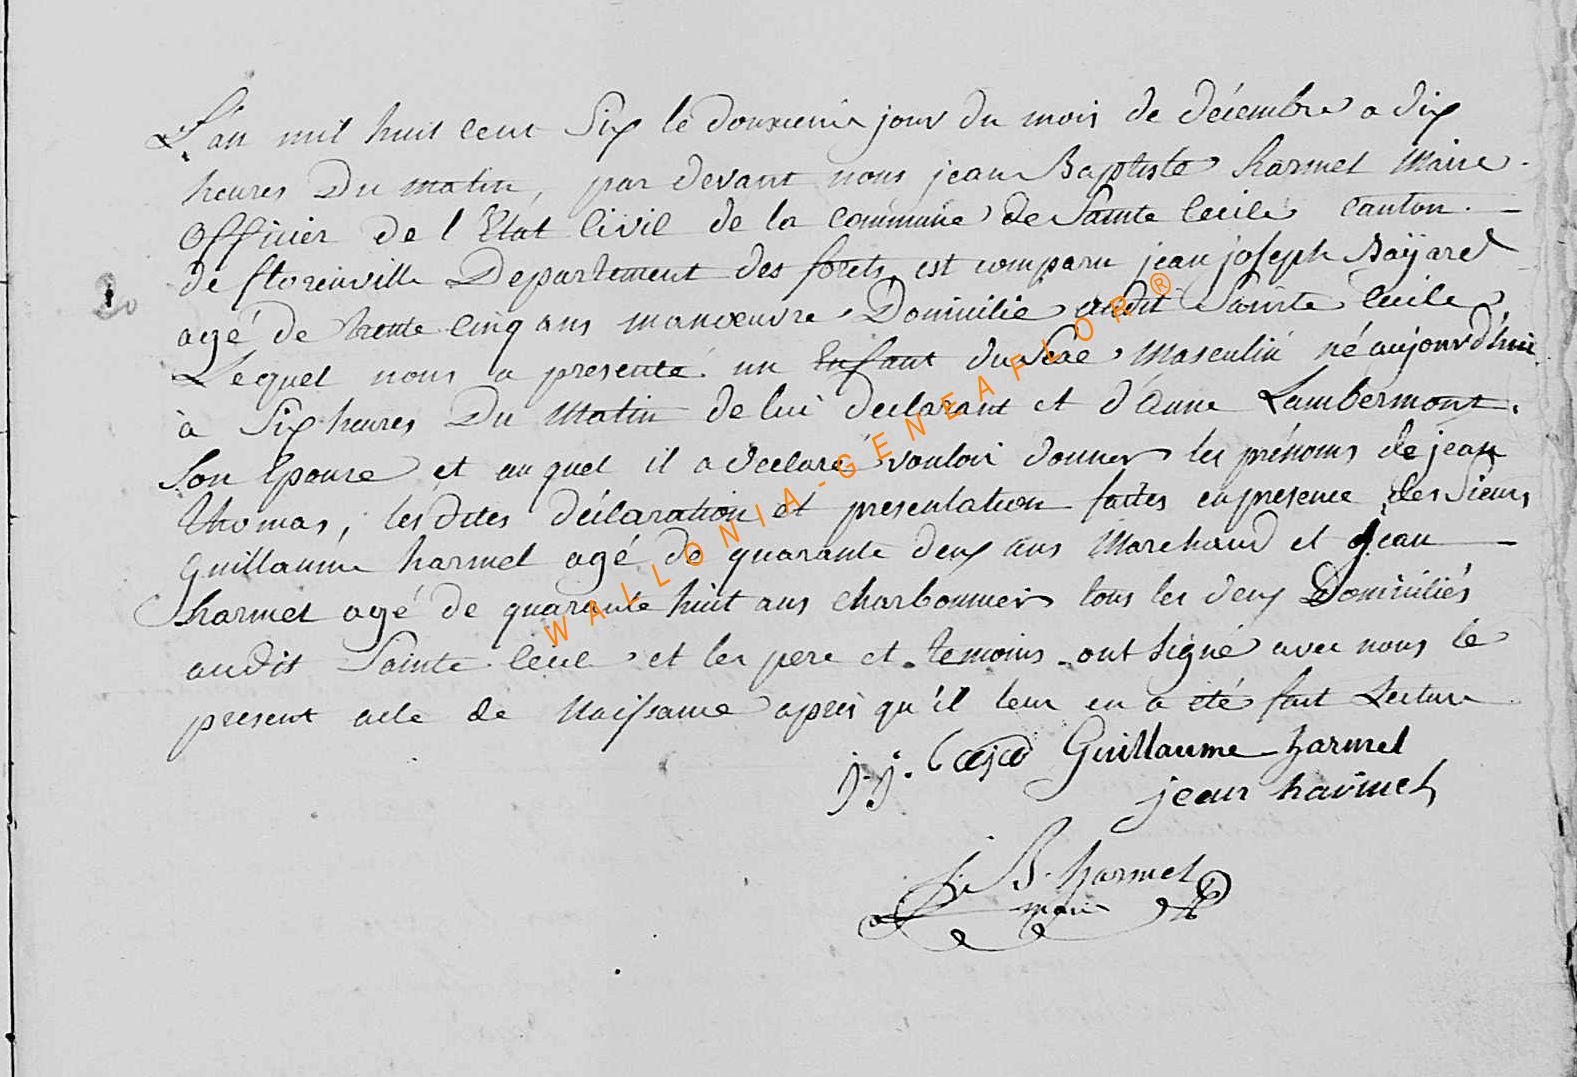 L'an mil huit cent Six le douxieme jour du mois de décembre a dix
heures Du matin, par devant nous jean Baptiste harmel Maire
Officier de l'Etat Civil de la commune de Sainte Cecile canton
20
de florenville Departement des forets, est comparu jean joseph Baÿard
agé de trente cinq ans manœuvre Domicilié audit Sainte Cecile
Lequel nous a presenté un Enfant du Sexe Masculin né aujourd'hui
à Six heures Du Matin de lui declarant et d'anne Lambermont.
Son Epouse et au quel il a declaré vouloir donner les prénoms de jean
thomas, les dites déclaration et presentation faites en presence des Sieurs
Guillaume harmel agé de quarante deux ans Marchand et jean
harmel agé de quarante huit ans charbonnier tous les deux Domiciliés
audit Sainte Cecile et les pere et temoins ont signé avec nous le
present acte de Naissance aprés qu'il leur en a été fait Lecture
j. j. Guillaume harmel
jean harmel
j. B. harmel
maire
WALLONIA-GENEAFLOR®